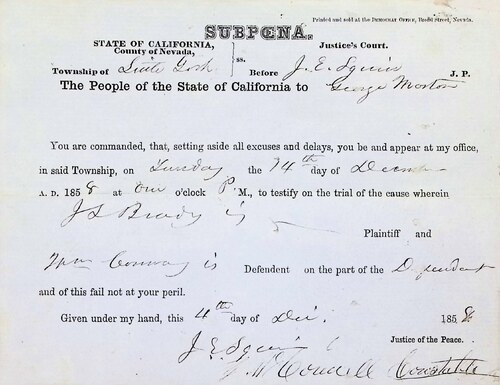 Printed and sold at the DEMOCRAT OFFICE, Broad Street, Nevada.
SUBPŒNA.
STATE OF CALIFORNIA,
County of Nevada, ss. Justice's Court.
Township of Little York Before J. E. Squire J. P.
The People of the State of California to George Morton
You are commanded, that, setting aside all excuses and delays, you be and appear at my office,
in said Township, on Tuesday the 14th day of
A. D. 1858 at one o'clock P. M., to testify on the trial of the cause wherein
J S Brady is
Plaintiff and
Wm Conway is Defendent on the part of the
and of this fail not at your peril.
Given under my hand, this 4th day of 1858
J E Squire Justice of the Peace.
Constable